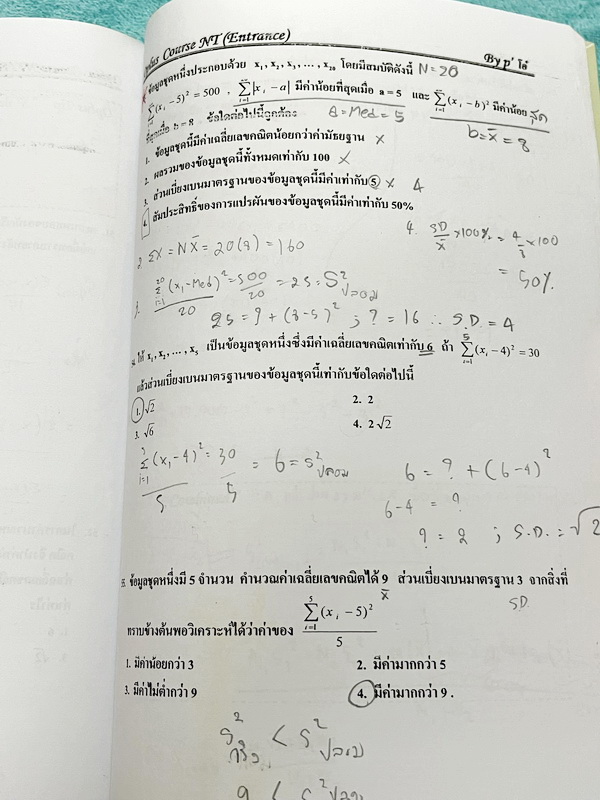 Course NT (Entrance)
By p' โอ๋
ข้อมูลชุดหนึ่งประกอบด้วย x₁, x₂, x₃, ..., x₂₀ โดยมีสมบัติดังนี้ N = 20
(xᵢ - 5)² = 500 , Σ|xᵢ - a| มีค่าน้อยที่สุดเมื่อ a = 5 และ Σ(xᵢ - b)² มีค่าน้อย สุด
ที่สุดเมื่อ b = 8 ข้อใดต่อไปนี้ถูกต้อง a = Med = 5
b = x̄ = 8
1. ข้อมูลชุดนี้มีค่าเฉลี่ยเลขคณิตน้อยกว่าค่ามัธยฐาน x
2. ผลรวมของข้อมูลชุดนี้ทั้งหมดเท่ากับ 100 x
3. ส่วนเบี่ยงเบนมาตรฐานของข้อมูลชุดนี้มีค่าเท่ากับ 5 x 4
4. สัมประสิทธิ์ของการแปรผันของข้อมูลชุดนี้มีค่าเท่ากับ 50%
4. SD/x̄ × 100% = 4/8 × 100
= 50%
2. Σx = Nx̄ = 20(8) = 160
3. Σ(xᵢ - Med)²/20 = 500/20 = 25 = S² ปลอม
25 = ? + (8-5)² ; ? = 16 ∴ S.D. = 4
ให้ x₁, x₂, ..., x₅ เป็นข้อมูลชุดหนึ่งซึ่งมีค่าเฉลี่ยเลขคณิตเท่ากับ 6 ถ้า Σ(xᵢ - 4)² = 30
แล้วส่วนเบี่ยงเบนมาตรฐานของข้อมูลชุดนี้เท่ากับข้อใดต่อไปนี้
1. √2 2. 2
3. √6 4. 2√2
Σ(xᵢ - 4)²/5 = 30/5 = 6 = S² ปลอม
6 = ? + (6-4)²
6-4 = ?
? = 2 ; S.D. = √2
ข้อมูลชุดหนึ่งมี 5 จำนวน คำนวณค่าเฉลี่ยเลขคณิตได้ 9 ส่วนเบี่ยงเบนมาตรฐาน 3 จากสิ่งที่
x̄ SD
ทราบข้างต้นพอวิเคราะห์ได้ว่าค่าของ Σ(xᵢ - 5)²/5
1. มีค่าน้อยกว่า 3 2. มีค่ามากกว่า 5
3. มีค่าไม่ต่ำกว่า 9 4. มีค่ามากกว่า 9 .
S² จริง < S² ปลอม
9 < S² ปลอม